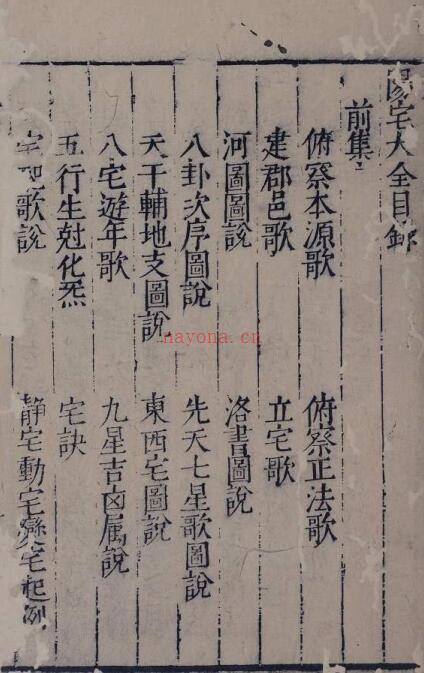 陽宅大全目錄
前集
俯察本源歌 俯察正法歌
建郡邑歌 立宅歌
河圖圖說 洛書圖說
八卦次序圖說 先天七星歌圖說
天干輔地支圖說 東西宅圖說
八宅遊年歌 九星吉凶属說
五行生尅化炁 宅訣
宅歌說 静宅動宅變宅起例
nayona.cn